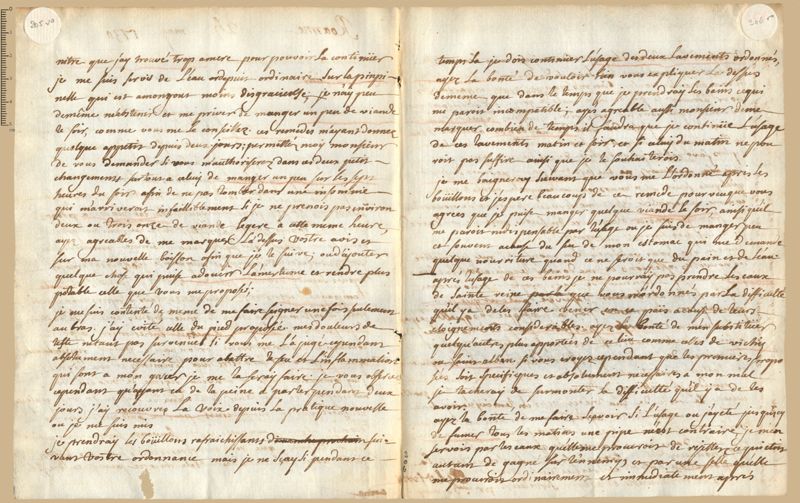 205 v°
nitre que j'ay trouvé trop amere pour pouvoir la continüer
je me suis servis de l'eau ordinaire sur la pinpi-
nelle qui est amongout moins disgracieuse, je n'ay peu
demême m'abstenir et me priver de manger un peu de viande
le soir, comme vous me le conseilez ces remedes m'ayant donnez
quelque appetits depuis deux jours; permettez moy monsieur
de vous demander si vous m'authorisrez dans ces deux petits
changements surtous a celuy de manger un peu sur les sept
heures du soir afin de ne pas tomber dans une insomnie
qui m'arriverais infailliblement si je ne prenois pas environ
deux ou trois once de viande legere a cette meme heure,
ayez agreables de me marquer la dessus vostre avis et
sur ma nouvelle boisson afin que je le suive; ou d'ajouter
quelque chose qui puise adoucir l'amertume et rendre plus
potable celle que vous me proposez;
je me suis contenté de meme de me faire seigner une fois seulement
au bras. j'ay evité celle du pied proposée mes douleurs de
teste n'etant pas survenues si vous me la jugé cependant
absolument necessaire pour abattre le feu et l'inflammation
qui sont a mon gosier je me la feray faire je vous observe
cependant qu'ayant eu de la peine a parler pendant deux
jours j'ay recouvrez la voix depuis la pratique nouvelle
ou je me suis mis
je prendray les boüillons rafraichissants suiv
vant vostre ordonnance mais je ne sçay si pendant ce
206 r°
temps la je dois continüer l'usage des deux lavements ordonnés,
ayez la bonté de vouloir bien vous expliquer la dessus
demême que dans le temps que je prendray les beins ce qui
me paroit incompatible; ayez agreable aussi monsieur de me
marquer combien de temps il faudra que je continüe l'usage
de ces lavements matin et soir, et si celuy du matin ne pou-
roit pas suffire ainsi que je le souhaiterois.
je me baigneray suivant que vous me l'ordonné apres les
boüillons et j'espere beaucoup de ce remede pourveu que vous
agreés que je puise manger quelque viande le soir, ainsi qu'il
me paroit indispensable par l'usage ou je suis de manger peu
et souvent a cause du feu de mon estomac qui me demande
quelque nourriture quand ce ne seroit que du pain et de l'eau
apres l'usage de ces beins je ne pouray pas prendre les eaux
de Sainte reine que vous m'ordonnés par la difficulté
qu'il y a de les faire venir en ce païs a cause de leurs
eloignements considerables. ayez la bonté de m'en substituer
quelqu'autres plus apportées de ce lieu comme celes de vichy
ou saint alban si vous croyez cependant que les premieres propo-
sées soit specifiques et absolument necesaires a mon mal
je tacheray de surmonter la difficulté qu'il y a de les
avoir
ayez la bonté de me faire sçavoir si l'usage ou j'ay eté jusqu'icy
de fumer tous les matins une pipe m'est contraire je m'en
servois par les eaux qu'elle me procuroit de rejetter, ce qui etoit
autant de gagné sur l'ennemy et par une selle quelle
me procuroit ordinairement et immediatement apres